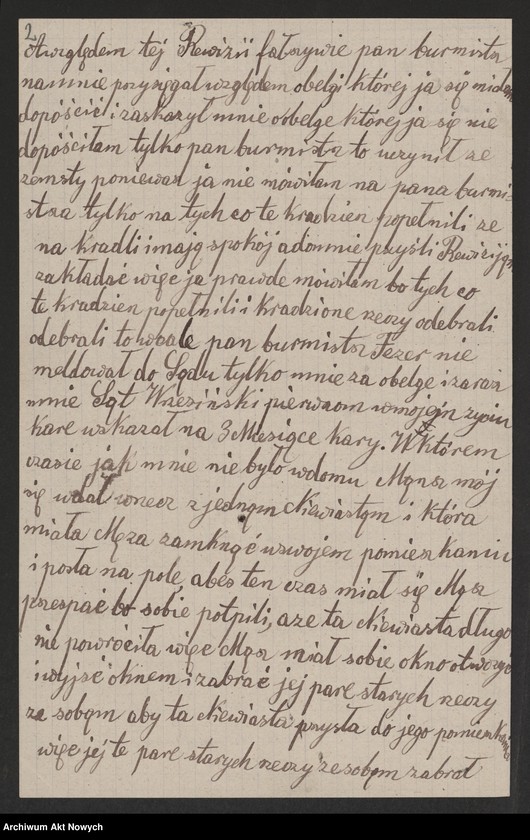 2
Awzględem tej Rewizii fałszywie pan burmistsz
namnie pszysięgał względem obelgi której ja się miałam
dopóścić i zaskarzył mnie oobelge której ja się nie
dopóściłam tylko pan burmistsz to uczynił ze
zemsty poniewasz ja nie mówiłam na pana burmi-
stsza tylko na tych co te kradzierz popełnili ze
na kradli imają spokój adomnie pszyśli Rewizyją
zakładać więc ja prawde mówiłam bo tych co
te kradzierz popełnili i kradzione rzeczy odebrali
odebrali to wcale pan burmistsz Fezer nie
meldował do Sądu tylko mnie za obelge i zaraz
mnie Sąt Wrzesiński pierwszom wmojem życiu
kare wskazał na 3 Miesiące kary. W Którem
czasie jak mnie nie było wdomu Mąnsz mój
się wdał wrzecz z jednąm Niewiastąm i która
miała Męza zamknąć wswojem pomieszkaniu
i posła na pole, abes ten czas miał się Mąsz
pszespać bo sobie potpili, a ze ta Niewiasta długo
nie powróciła więc Mąsz miał sobie okno otworzyć
i wyjsć oknem i zabrać jej pare starych rzeczy
ze sobąm aby ta Niewiasta pszysła do jego pomieszkania
więc jej te pare starych rzeczy ze sobąm zabrał
Archiwum Akt Nowych